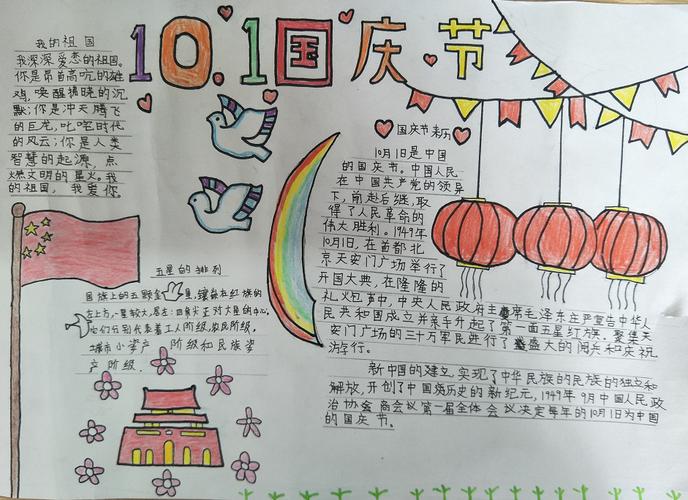 10.1国庆节
我的祖国
我深深爱恋的祖国。
你是昂首高吭的雄
鸡，唤醒拂晓的沉
默；你是冲天腾飞
的巨龙，叱咤时代
的风云；你是人类
智慧的起源，点
燃文明的星火。我
的祖国，我爱你。
五星的排列
国旗上的五颗金星，镶嵌在红旗的
左上方，一星较大，居左：四
正对大星的中心，
它们分别代表着工人阶级，农民阶级，
城市小资产阶级和民族资
产阶级.
国庆节来历
10月1日是中国
的国庆节。中国人民
在中国共产党的领导
下，前赴后继，取
得了人民革命的
伟大胜利。1949年
10月1日，在首都北
京天安门广场举行了
开国大典，在隆隆的
礼火包声中，中央人民政府主席毛泽东庄严宣告中华人
民共和国成立并亲手升起了第一面五星红旗。聚集天
安门广场的三十万军民进行了盛大的阅兵和庆祝
游行。
新中国的建立，实现了中华民族的民族的独立和
解放，开创了中国历史的新纪元，1949年9月中国人民政
治协会商会议第一届全体会议决定每年的10月1日为中国
的国庆节。